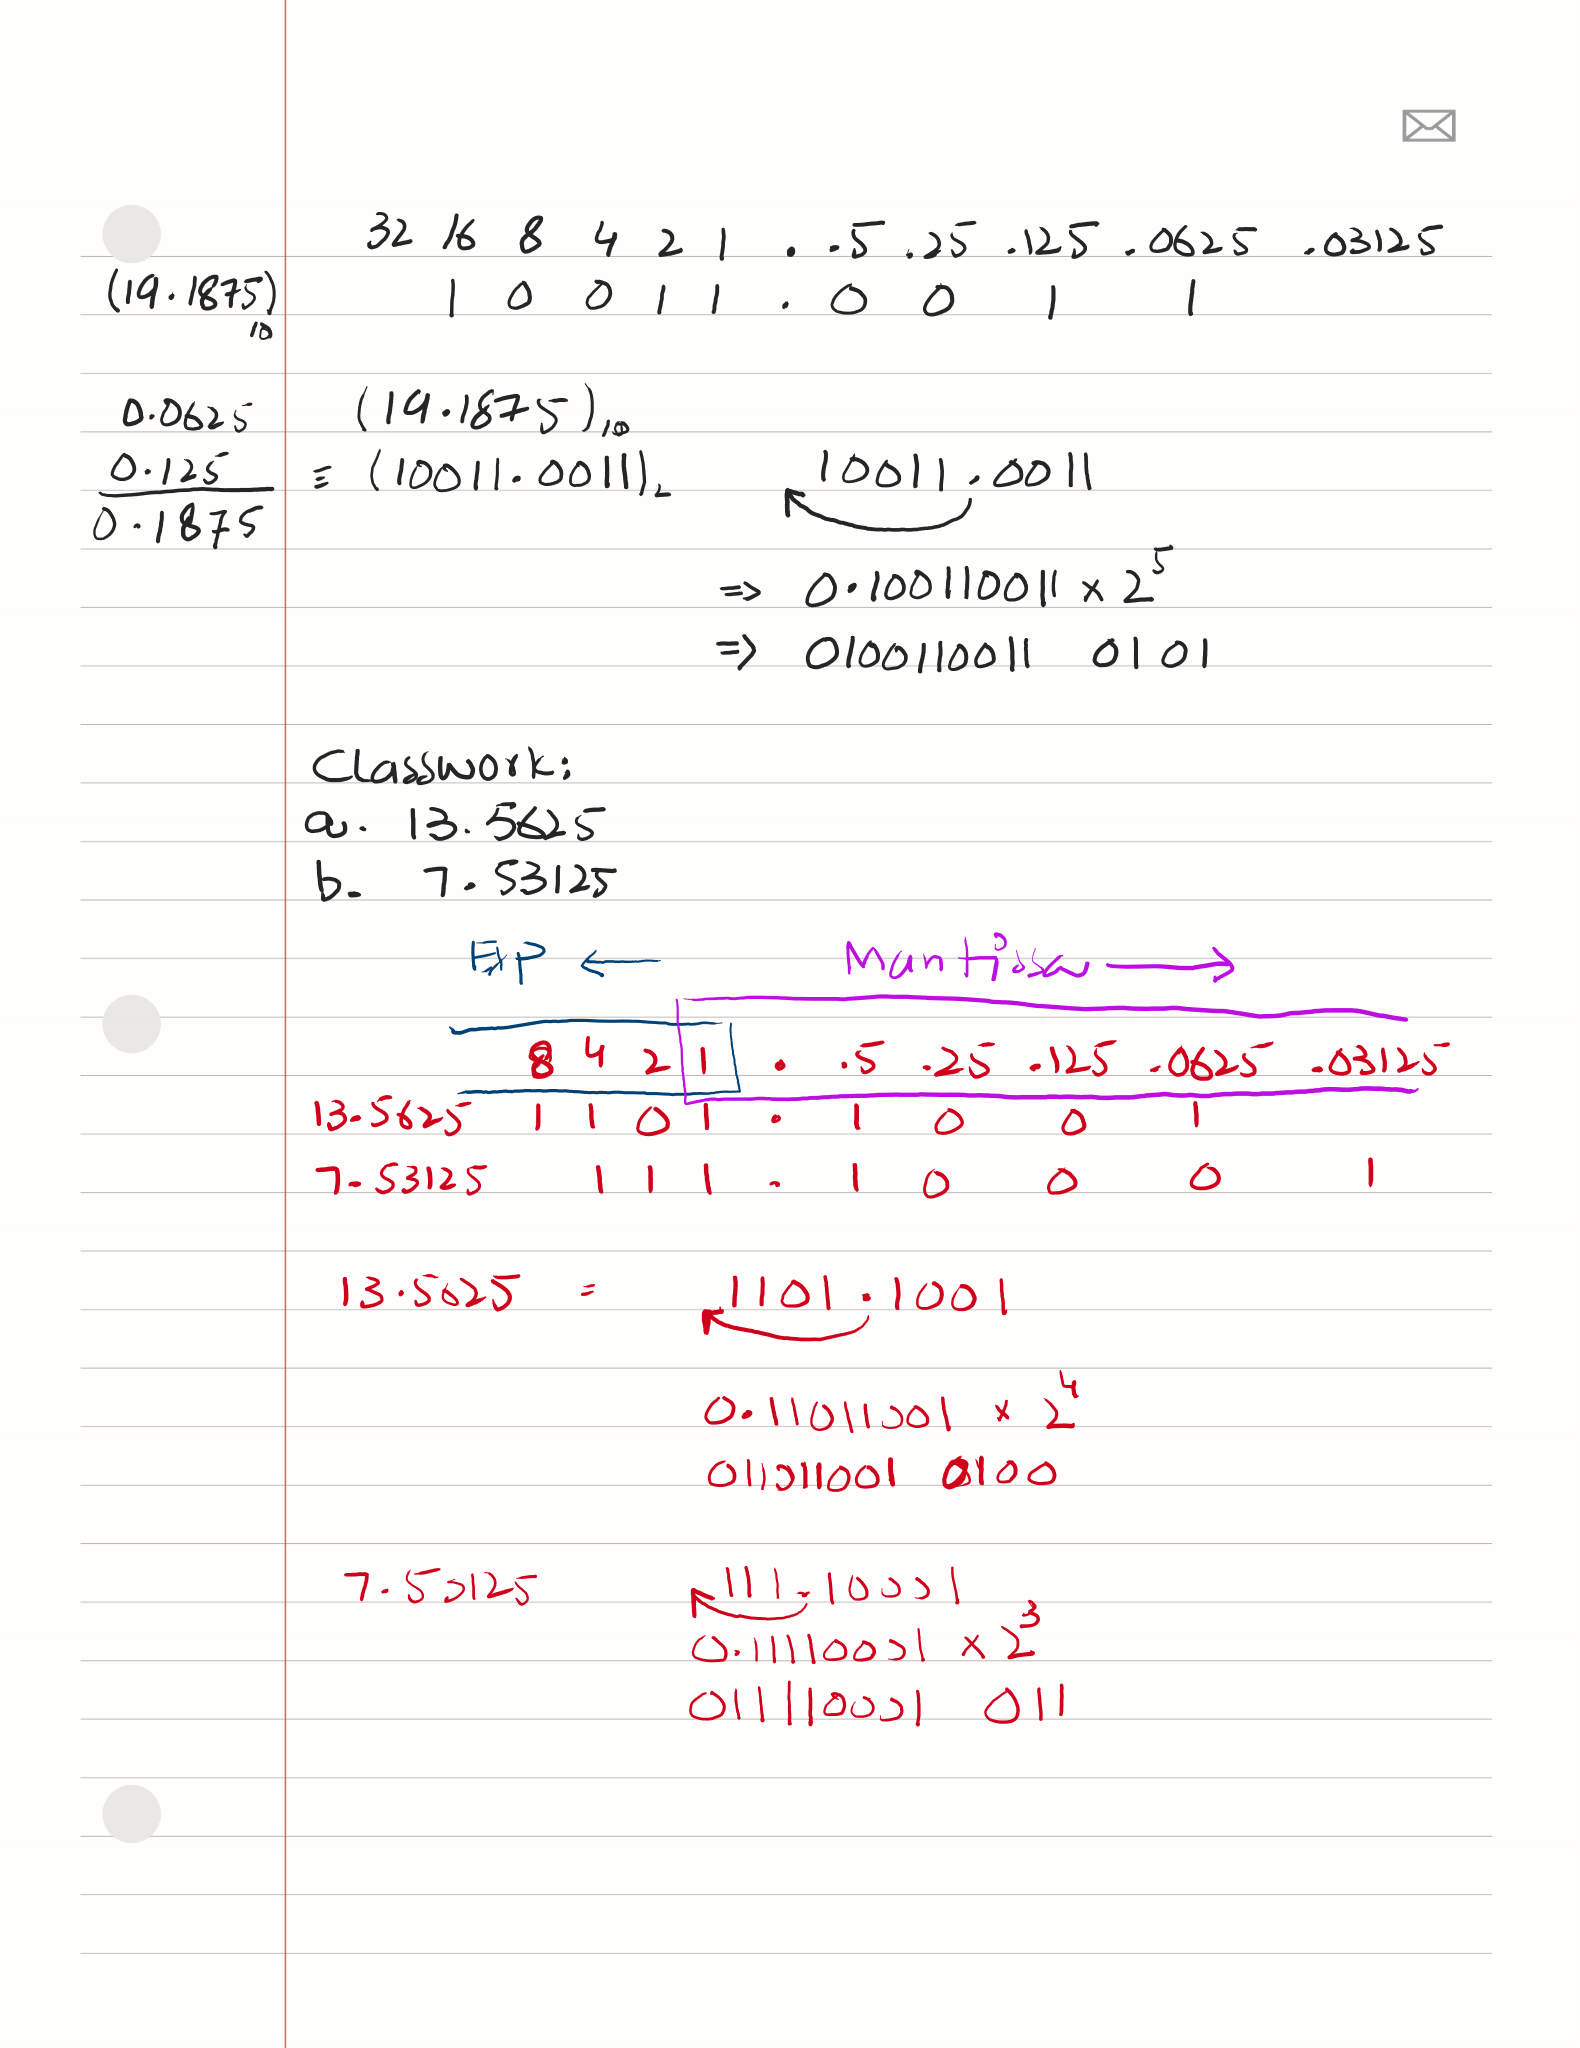 32 16 8 4 2 1 . .5 .25 .125 .0625 .03125
(19.1875)10 1 0 0 1 1 . 0 0 1 1
0.0625 (19.1875)10
0.125 ≡ (10011.0011)2 10011.0011
0.1875
=> 0.100110011 × 2^5
=> 0100110011 0101
Classwork:
a. 13.5625
b. 7.53125
Exp ← Mantissa →
8 4 2 1 . .5 .25 .125 .0625 .03125
13.5625 1 1 0 1 . 1 0 0 1
7.53125 1 1 1 . 1 0 0 0 1
13.5625 = 1101.1001
0.11011001 × 2^4
011011001 0100
7.53125 111.10001
0.11110001 × 2^3
011110001 011